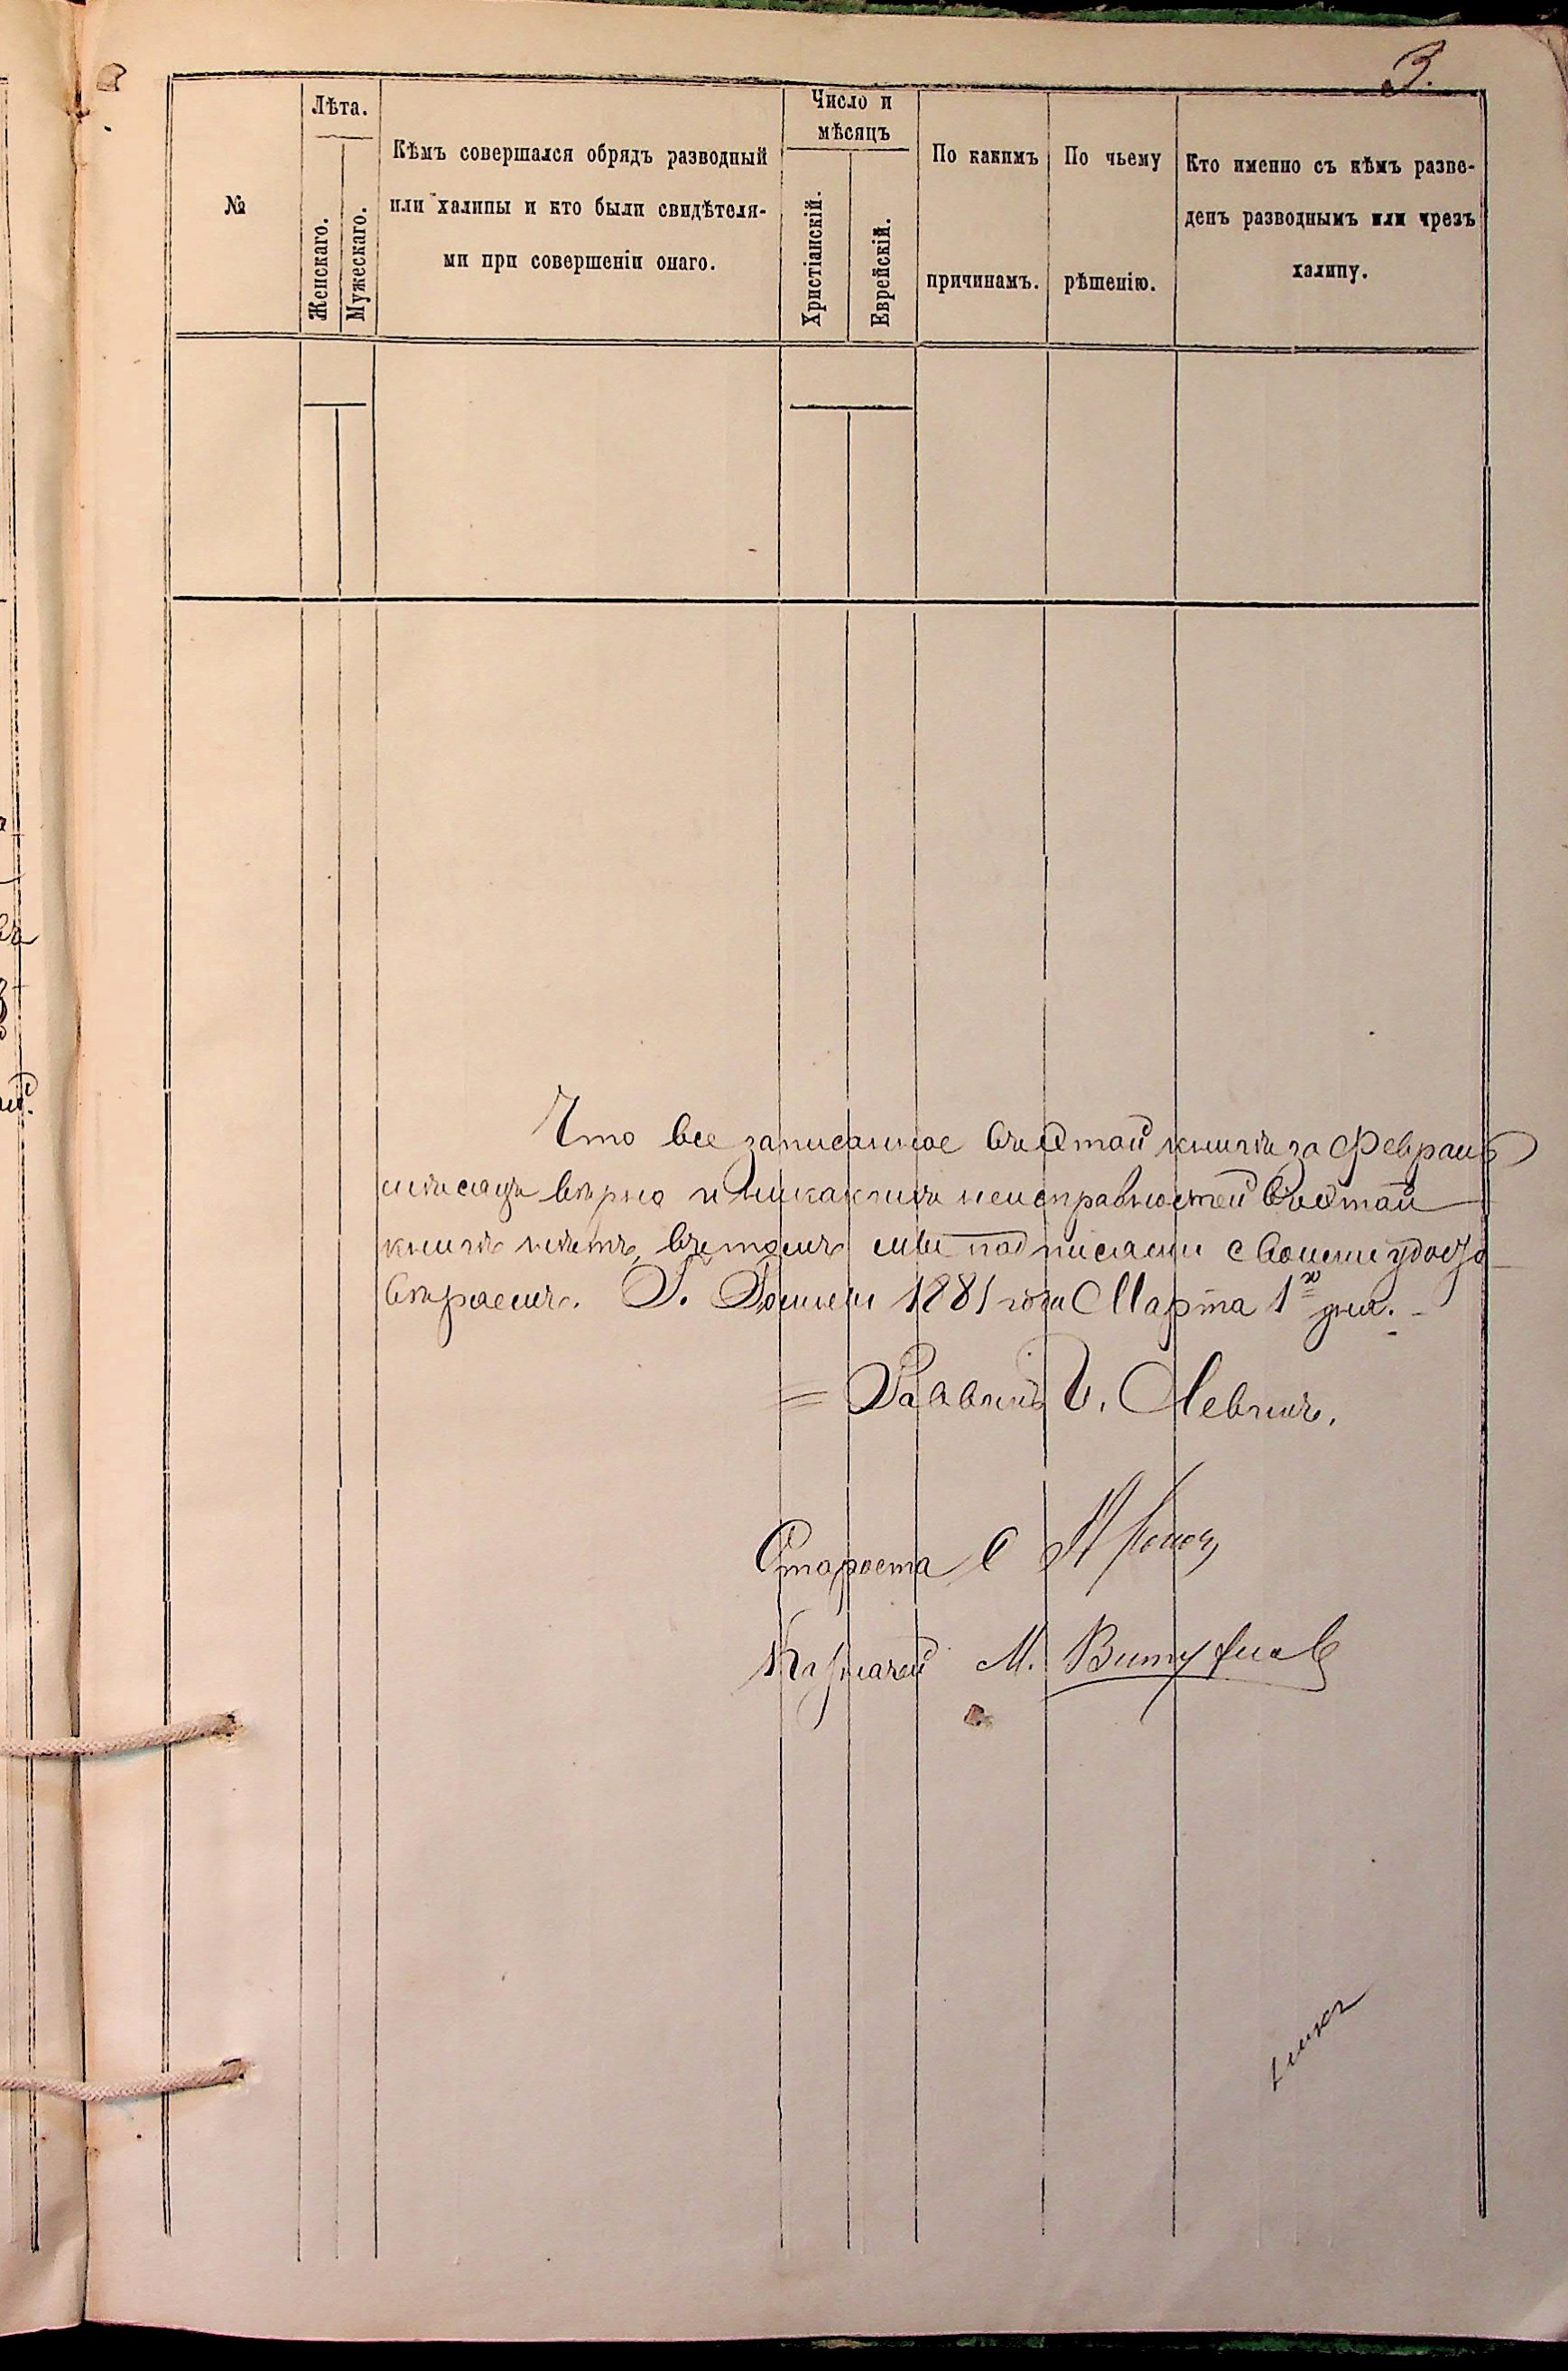 3.
№
Лѣта.
Женскаго.
Мужескаго.
Кѣмъ совершался обрядъ разводный
или халипы и кто были свидѣтеля-
ми при совершеніи онаго.
Число и
мѣсяцъ
Христіанскій.
Еврейскій.
По какимъ
причинамъ.
По чьему
рѣшенію.
Кто именно съ кѣмъ разве-
денъ разводнымъ или чрезъ
халипу.
Что все записанное въ этой книгѣ за Февраль
мѣсяцъ вѣрно и никакихъ неисправностей въ этой
книгѣ нѣтъ, въ томъ мы подписами своими удосто
вѣряемъ. Г. Гомель 1881 года Марта 1 дня.
Раввинъ Левинъ.
Староста
Казначей М.